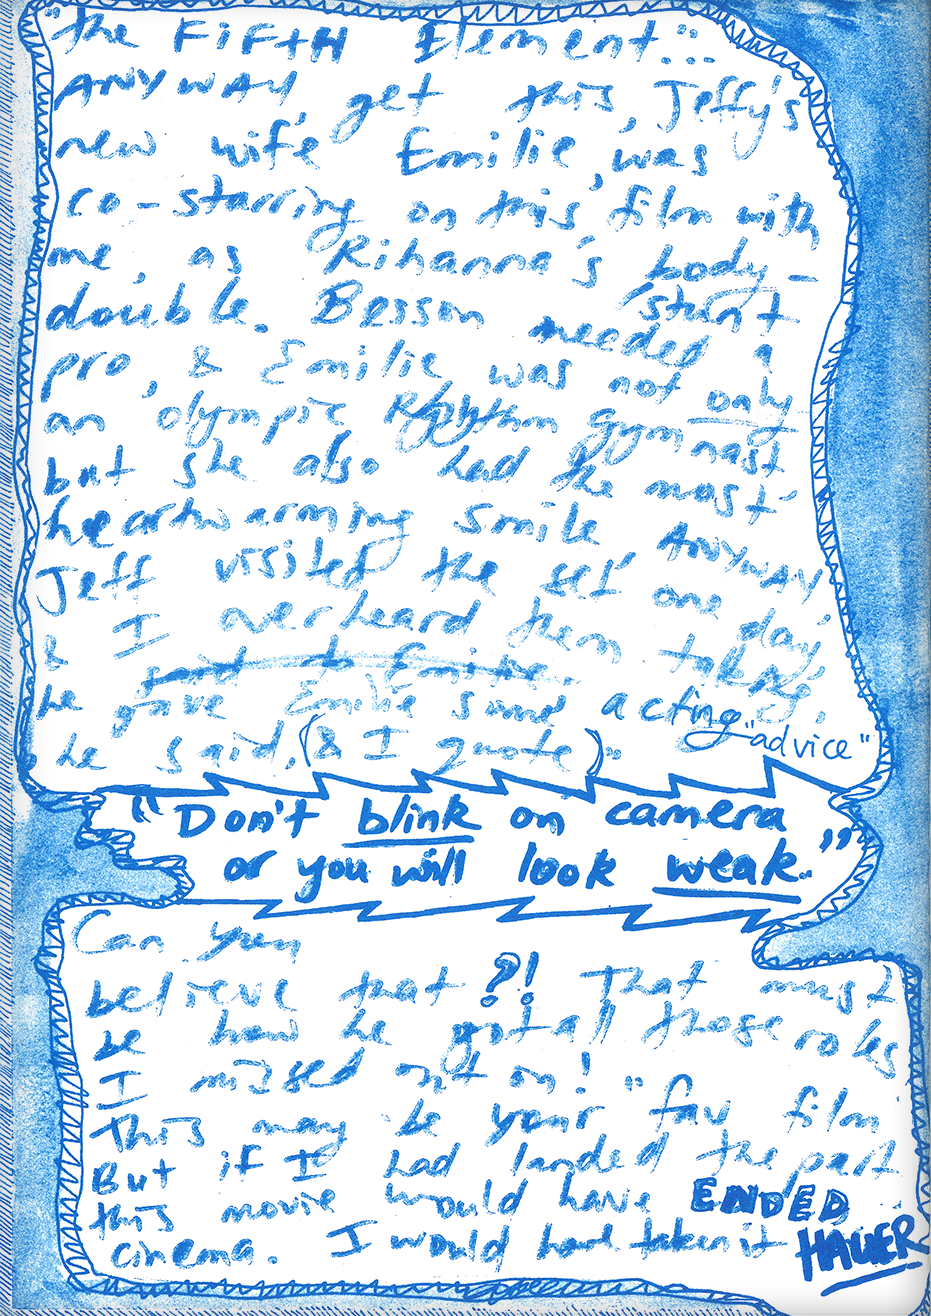 "the FIFtH Element"...
ANYWAY, get this, Jeffy's
new wife Emilie, was
co-starring on this film with
me, as Rihanna's body-
double. Besson needed a 'stunt
pro', & Emilie was not only
an olympic Rhythm gymnast
but she also had the most
heartwarming smile ANYWAY
Jeff visited the set one day,
& I overheard them talking,
said to Emilie.
he gave Emilie some acting "advice"
he said, (& I quote):
"Don't blink on camera
or you will look weak."
Can you
believe that?! That must
be how he got all those roles
I missed out on! "
This may be your fav film
But if I had landed the part
this movie would have ENDED
cinema. I would have taken it
HAUER